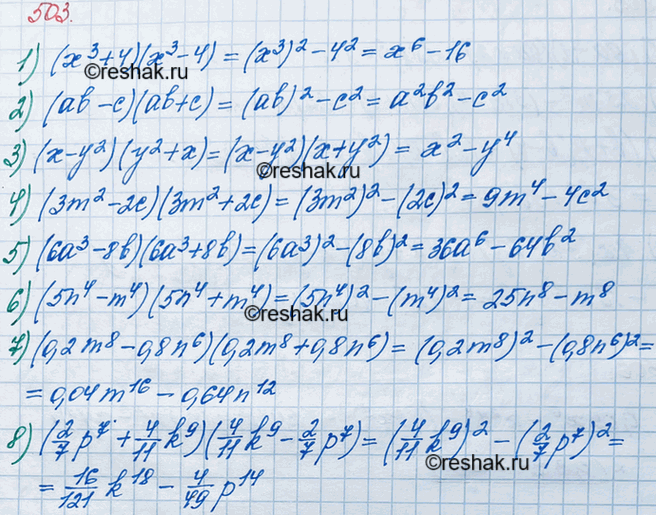 503.
1) (x³+4)(x³-4) = (x³)² - 4² = x⁶ - 16
©reshak.ru
2) (ab - c)(ab + c) = (ab)² - c² = a²b² - c²
3) (x - y²)(y² + x) = (x - y²)(x + y²) = x² - y⁴
©reshak.ru
4) (3m² - 2c)(3m² + 2c) = (3m²)² - (2c)² = 9m⁴ - 4c²
5) (6a³ - 8b)(6a³ + 8b) = (6a³)² - (8b)² = 36a⁶ - 64b²
6) (5n⁴ - m⁴)(5n⁴ + m⁴) = (5n⁴)² - (m⁴)² = 25n⁸ - m⁸
©reshak.ru
7) (0,2m⁸ - 0,8n⁶)(0,2m⁸ + 0,8n⁶) = (0,2m⁸)² - (0,8n⁶)² =
= 0,04m¹⁶ - 0,64n¹²
8) (2/7 p⁷ + 4/11 k⁹)(4/11 k⁹ - 2/7 p⁷) = (4/11 k⁹)² - (2/7 p⁷)² =
©reshak.ru
= 16/121 k¹⁸ - 4/49 p¹⁴